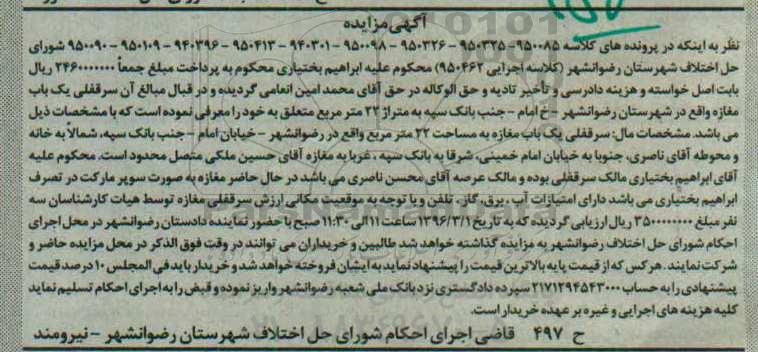 آگهی مزایده
نظر به اینکه در پرونده های کلاسه ۹۵۰۰۸۵- ۹۵۰۳۲۵ - ۹۵۰۳۲۶ - ۹۵۰۰۹۸ - ۹۴۰۳۰۱ - ۹۵۰۴۱۳ - ۹۴۰۳۹۶ - ۹۵۰۱۰۹ - ۹۵۰۰۹۰ شورای
حل اختلاف شهرستان رضوانشهر (کلاسه اجرایی ۹۵۰۴۶۲) محکوم علیه ابراهیم بختیاری محکوم به پرداخت مبلغ جمعاً ۲۴۶۰۰۰۰۰۰۰ ریال
بابت اصل خواسته و هزینه دادرسی و تأخیر تادیه و حق الوکاله در حق آقای محمد امین انعامی گردیده و در قبال مبالغ آن سرقفلی یک باب
مغازه واقع در شهرستان رضوانشهر -خ امام - جنب بانک سپه به متراژ ۲۲ متر مربع متعلق به خود را معرفی نموده است که با مشخصات ذیل
می باشد. مشخصات مال: سرقفلی یک باب مغازه به مساحت ۲۲ متر مربع واقع در رضوانشهر - خیابان امام -جنب بانک سپه، شمالاً به خانه
و محوطه آقای ناصری، جنوبا به خیابان امام خمینی، شرقا به بانک سپه، غربا به مغازه آقای حسین ملکی متصل محدود است. محکوم علیه
آقای ابراهیم بختیاری مالک سرقفلی بوده و مالک عرصه آقای محسن ناصری می باشد در حال حاضر مغازه به صورت سوپر مارکت در تصرف
ابراهیم بختیاری می باشد دارای امتیازات آب ، برق، گاز، تلفن و با توجه به موقعیت مکانی ارزش سرقفلی مغازه توسط هیات کارشناسان سه
نفر مبلغ ۳۵۰۰۰۰۰۰۰۰ ریال ارزیابی گردیده که به تاریخ ۱۳۹۶/۳/۱ ساعت ۱۱ الی ۱۱:۳۰ صبح با حضور نماینده دادستان رضوانشهر در محل اجرای
احکام شورای حل اختلاف رضوانشهر به مزایده گذاشته خواهد شد طالبین و خریداران می توانند در وقت فوق الذکر در محل مزایده حاضر و
شرکت نمایند. هر کس که از قیمت پایه بالاترین قیمت را پیشنهاد نماید به ایشان فروخته خواهد شد و خریدار باید فی المجلس ۱۰ درصد قیمت
پیشنهادی را به حساب ۲۱۷۱۲۹۴۵۴۳۰۰۰ سپرده دادگستری نزد بانک ملی شعبه رضوانشهر واریز نموده و قبض را به اجرای احکام تسلیم نماید
کلیه هزینه های اجرایی و غیره بر عهده خریدار است.
ح ۴۹۷ قاضی اجرای احکام شورای حل اختلاف شهرستان رضوانشهر -نیرومند